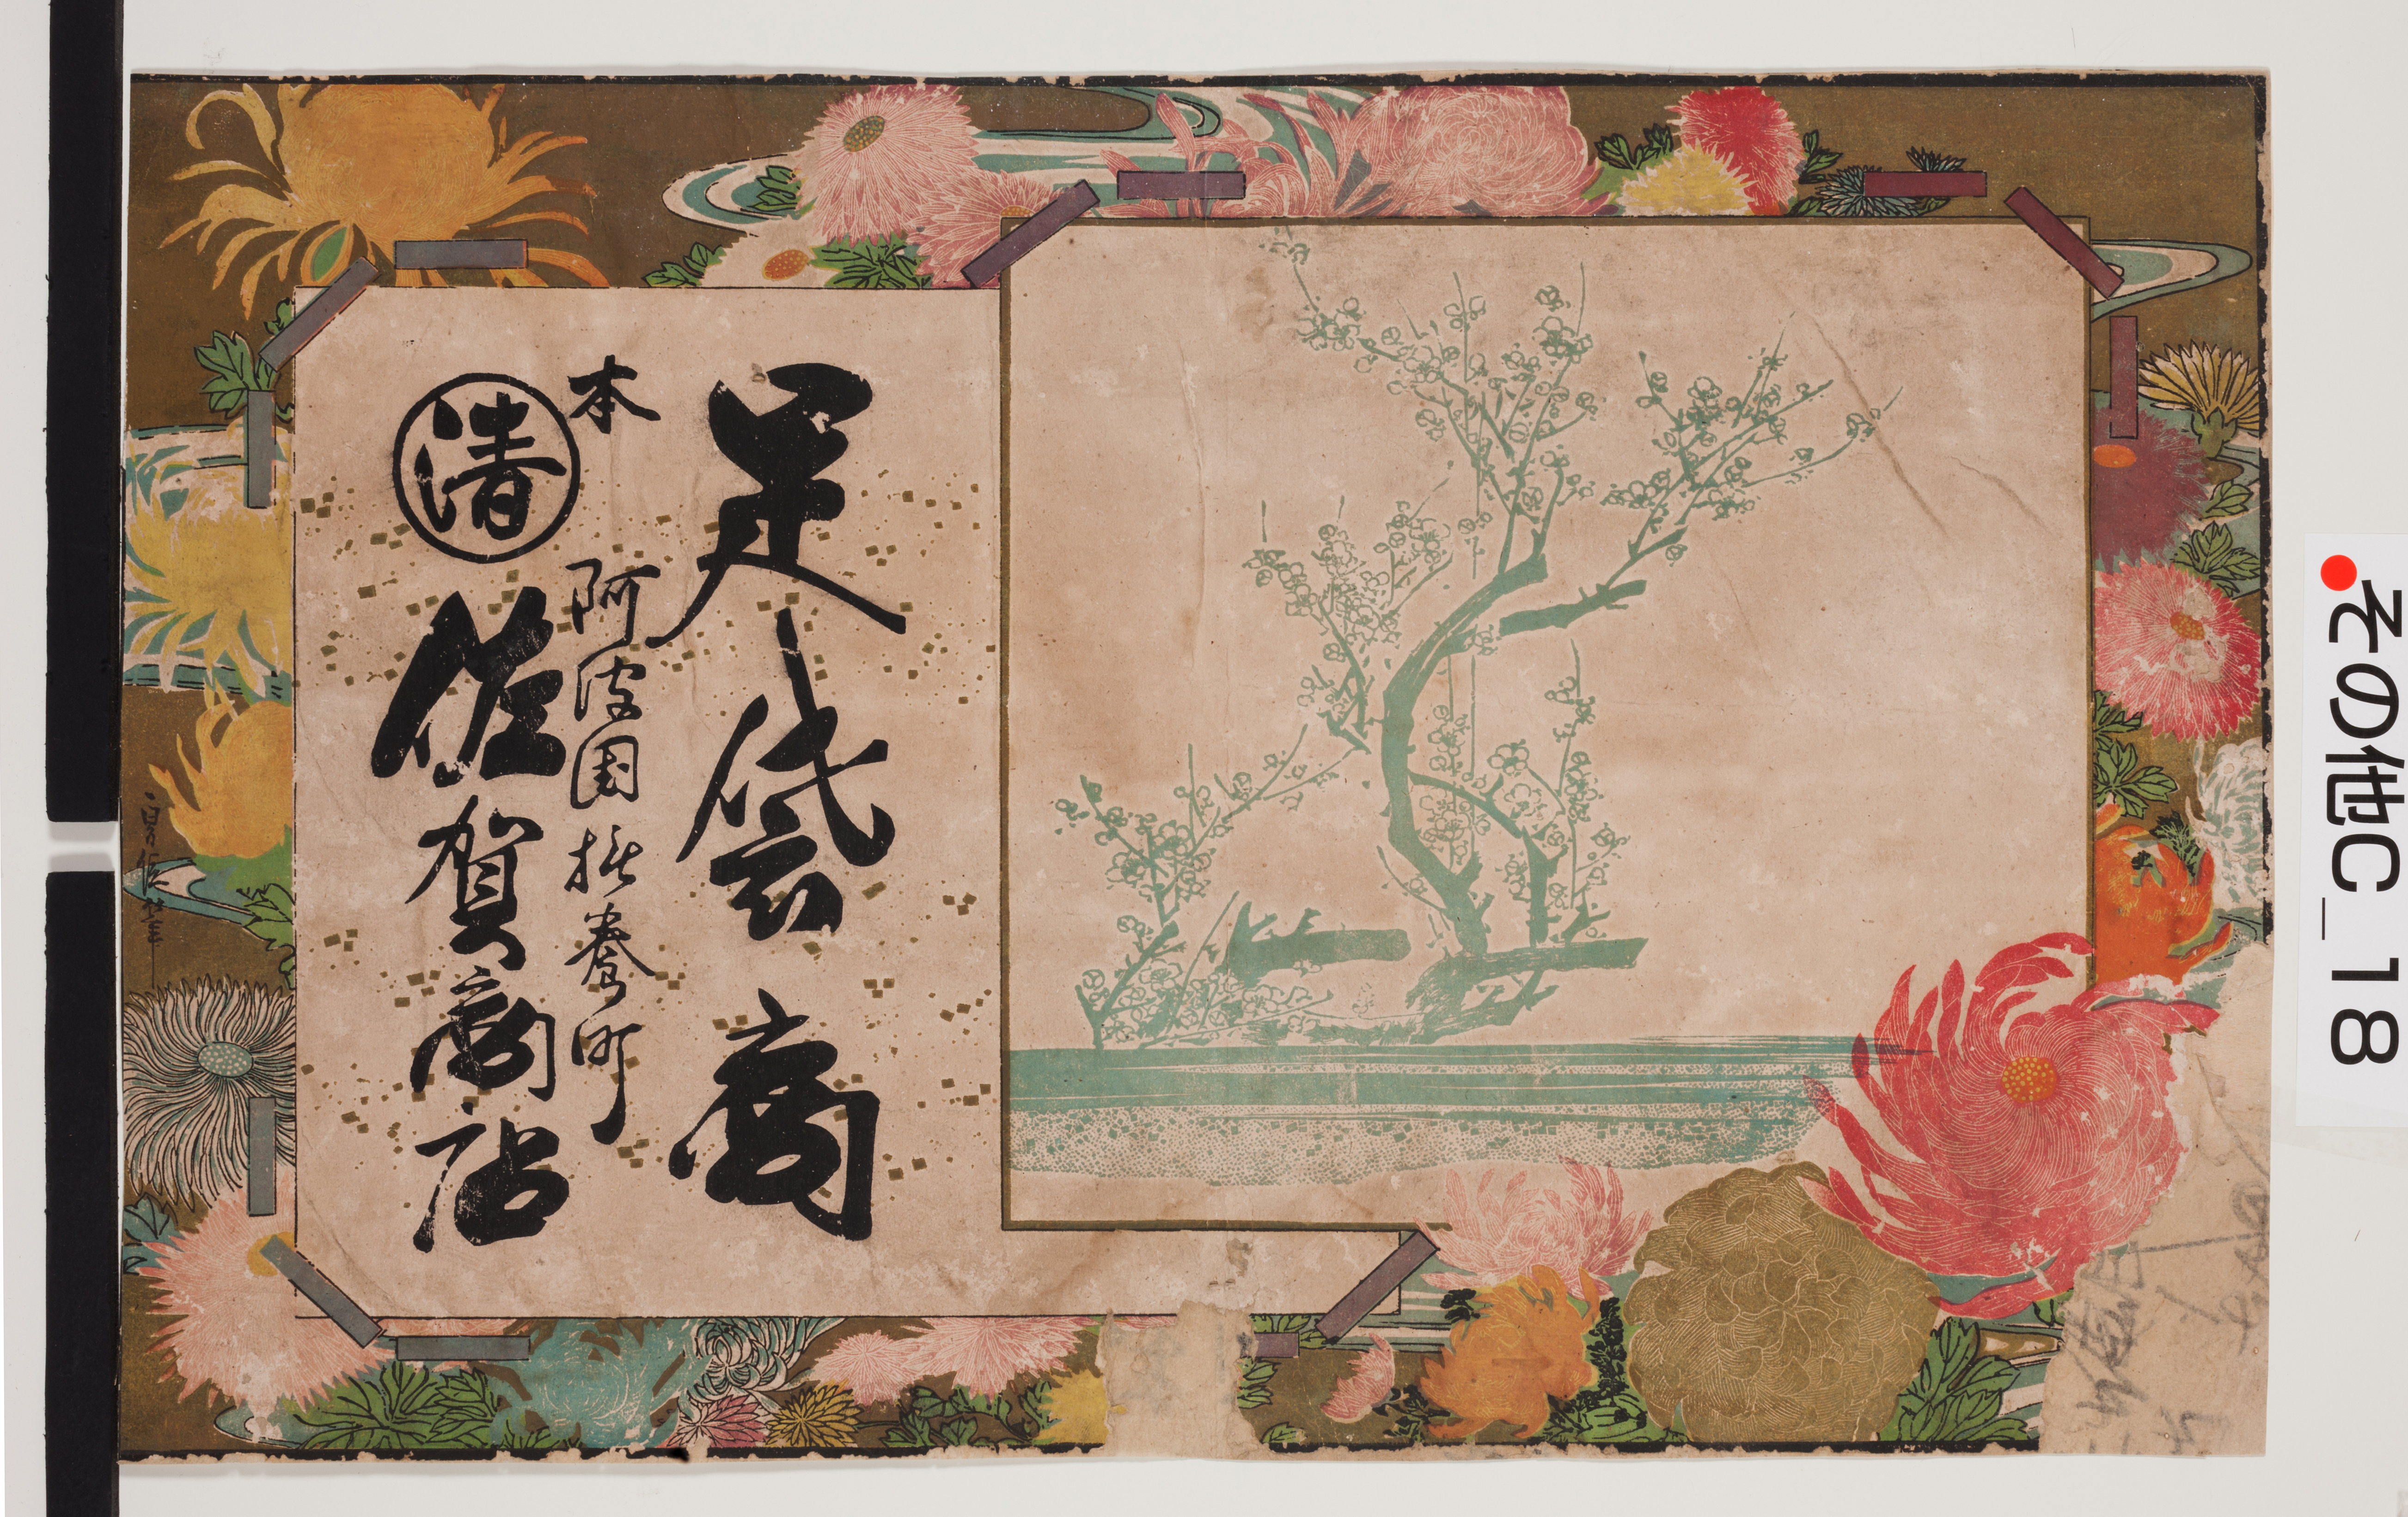 足袋商
本
阿波国撫養町
清
佐賀商店
その他C_18